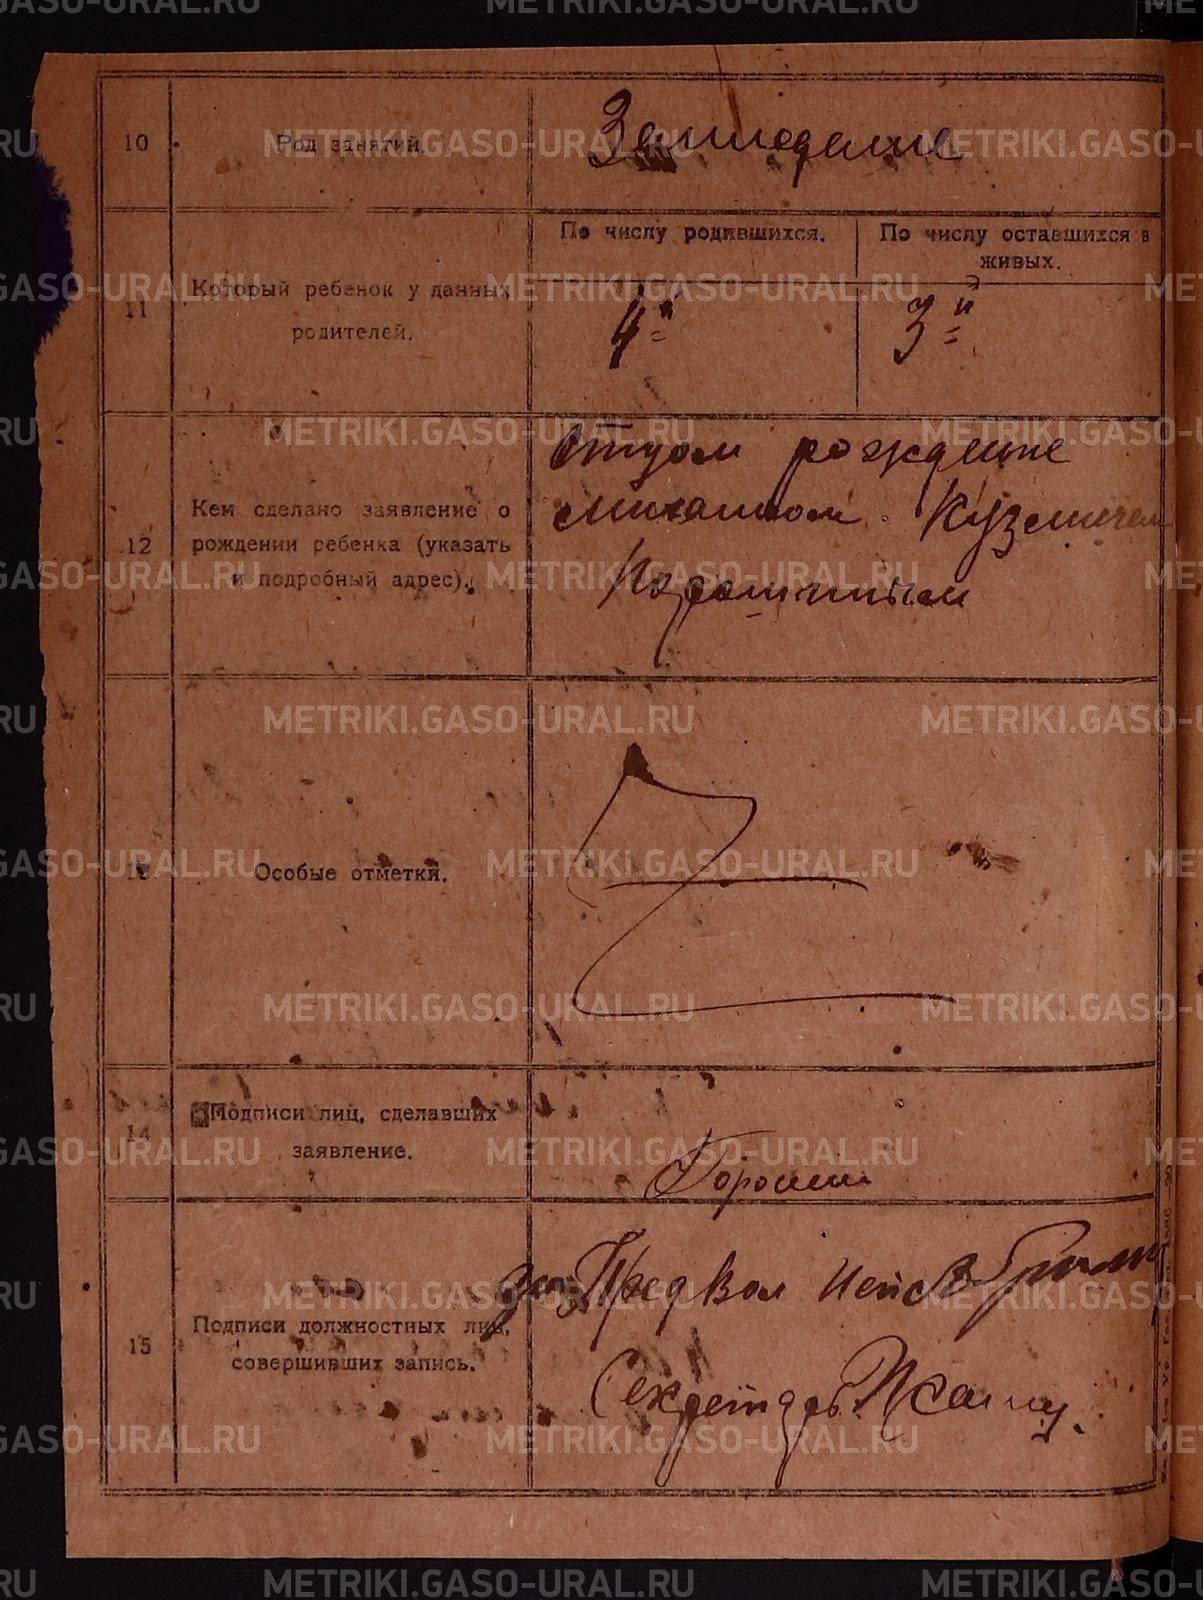 10
Род занятий.
Земледелие
11
Который ребенок у данных
родителей.
По числу родившихся.
По числу оставшихся в
живых.
4й
3й
12
Кем сделано заявление о
рождении ребенка (указать
и подробный адрес).
Отцом рождение
Михаилом Кузмичем
13
Особые отметки.
14
Подписи лиц, сделавших
заявление.
15
Подписи должностных лиц,
совершивших запись.
Предвол
Секретарь
METRIKI.GASO-URAL.RU